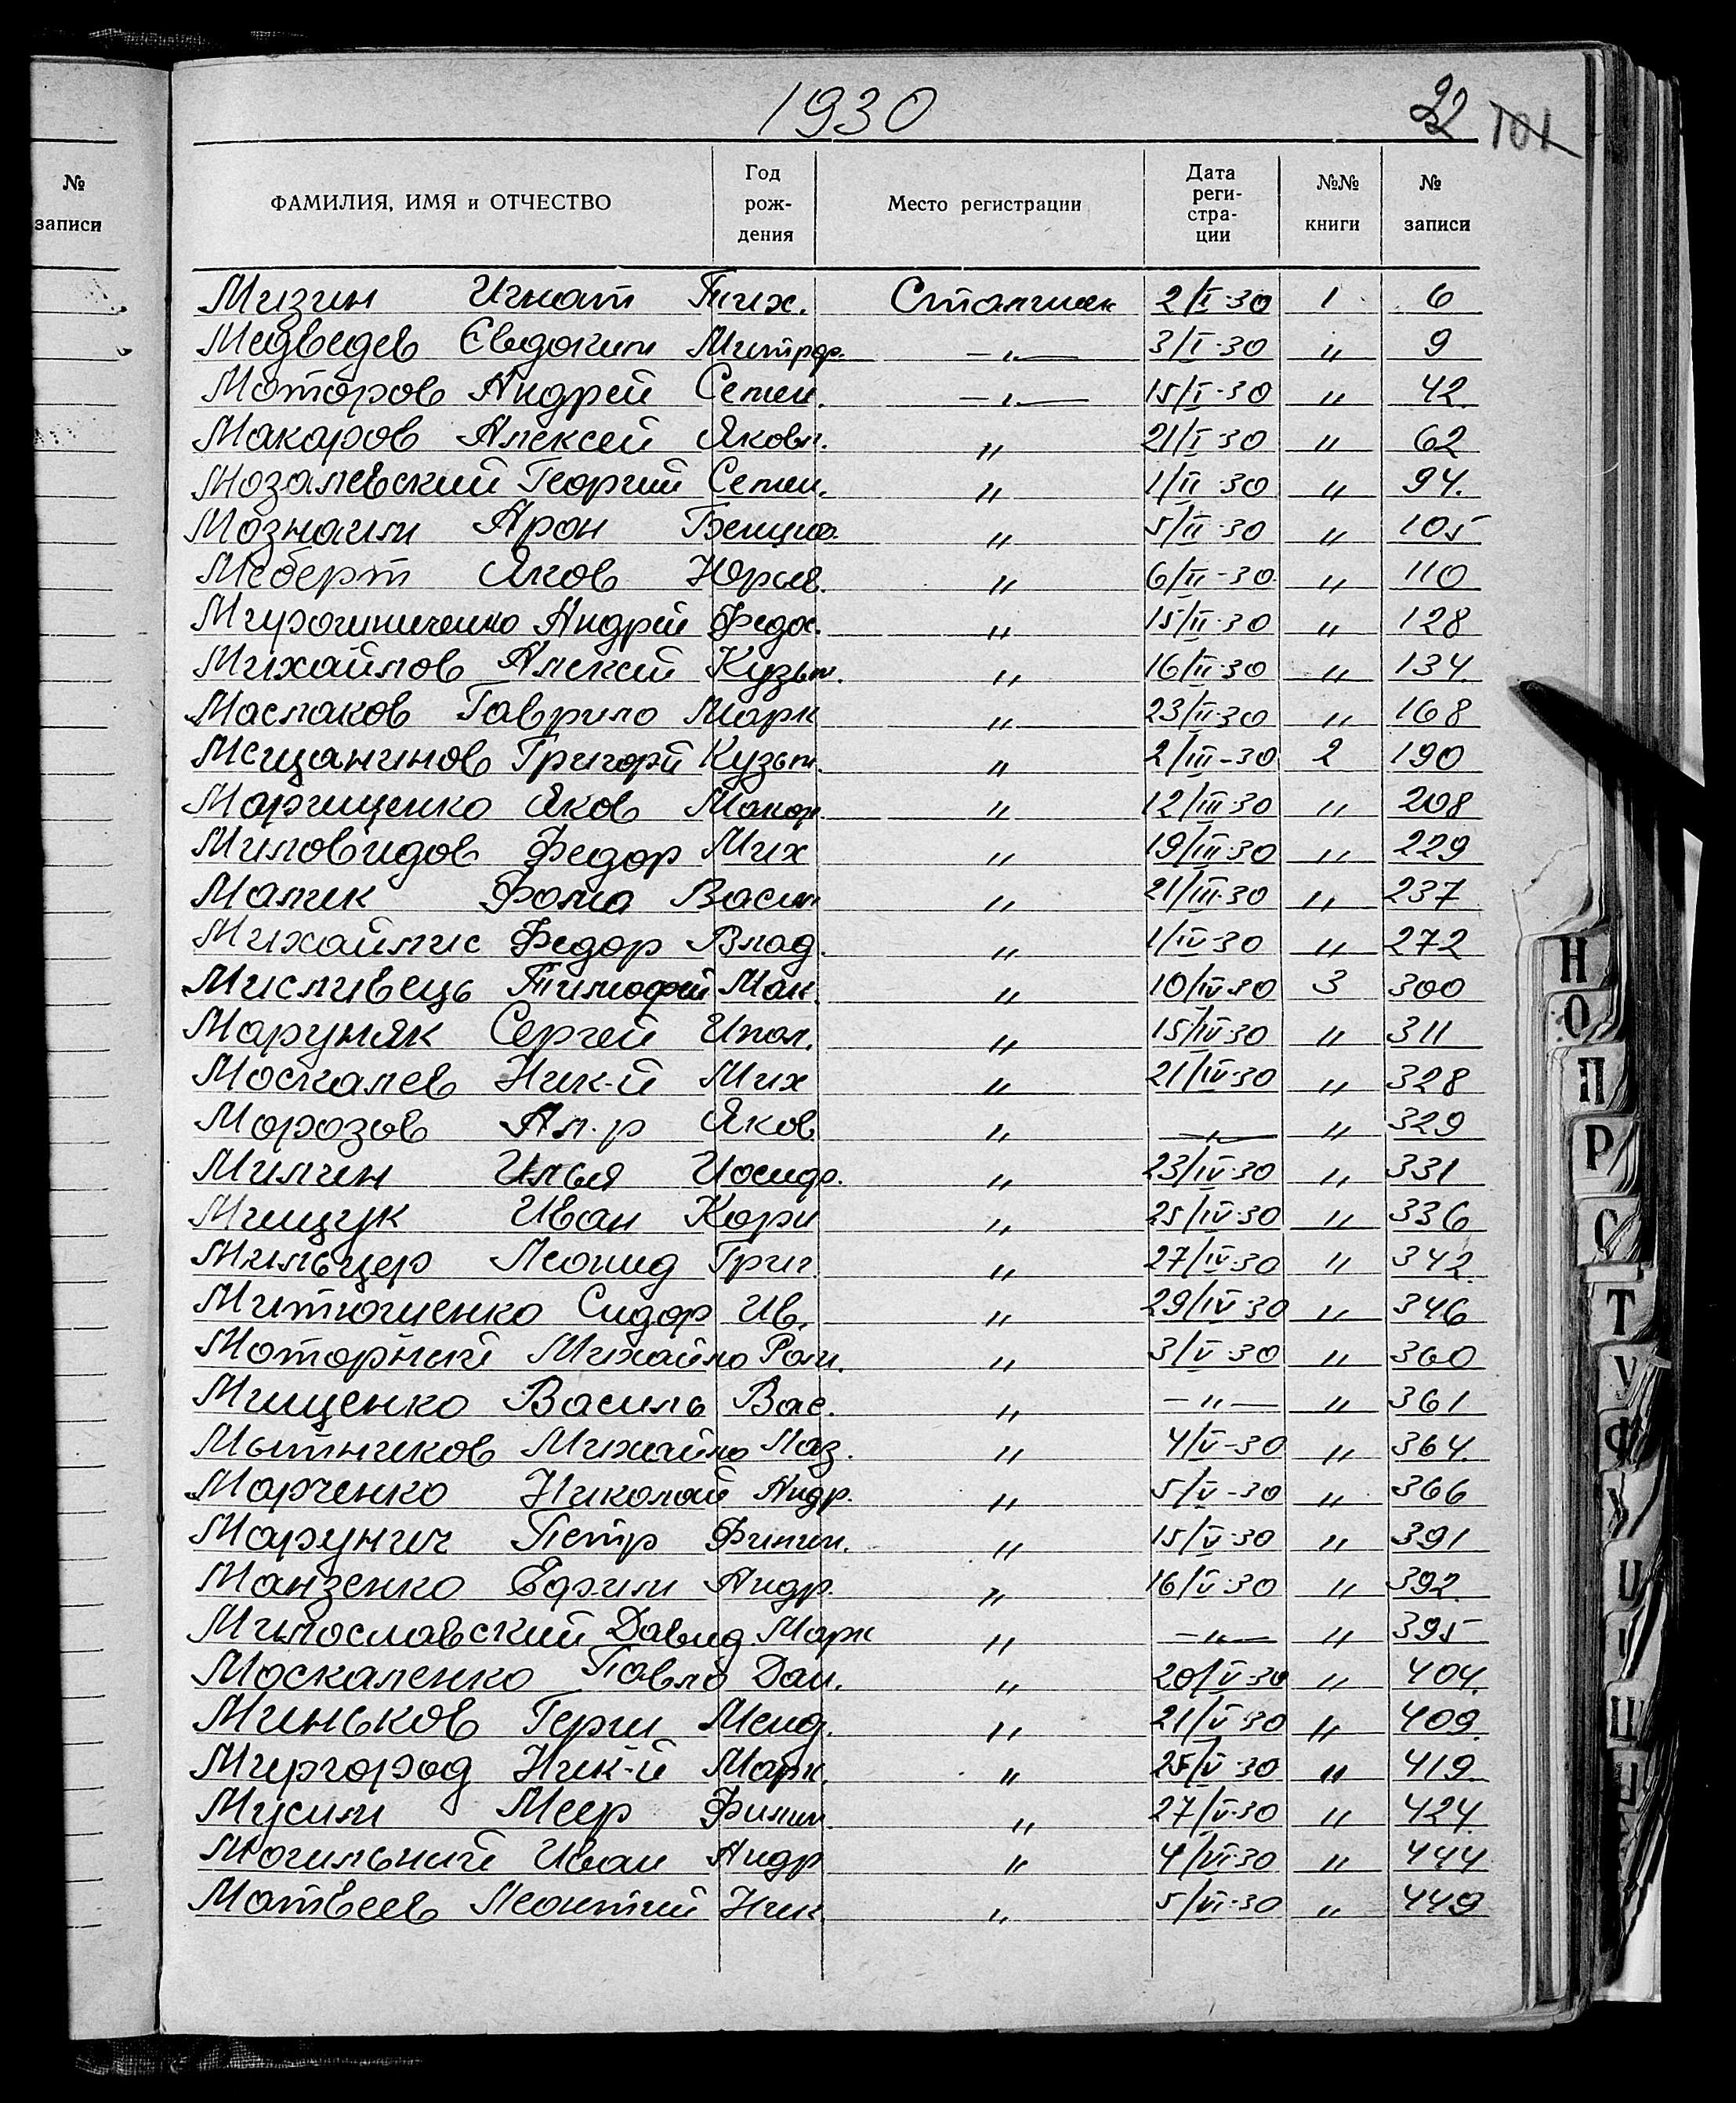 1930
22 101
№ записи
ФАМИЛИЯ, ИМЯ и ОТЧЕСТВО Год рождения Место регистрации Дата регистрации №№ книги № записи
Мизин Игнат Тих. 2/I-30 1 6
Медведев Євдоким Митроф. —〃— 3/I-30 〃 9
Моторов Андрей Семен. —〃— 15/I-30 〃 42
Макаров Алексей Яковл. 〃 21/I-30 〃 62
Мозалевский Георгий Семен. 〃 1/II-30 〃 94.
Арон Бенцио. 〃 5/II-30 〃 105
Меберт Яков Юрьев. 〃 6/II-30 〃 110
Мирошниченко Андрей Федос. 〃 15/II-30 〃 128
Михайлов Алексей Кузьм. 〃 16/II-30 〃 134.
Маслаков Гаврило Марк 〃 23/II-30 〃 168
Мещанинов Григорй Кузьм. 〃 2/III-30 2 190
Марищенко Яков Макар 〃 12/III-30 〃 208
Миловидов Федор Мих 〃 19/III-30 〃 229
Малик Фома Васил 〃 21/III-30 〃 237
Михайлис Федор Влад. 〃 1/IV-30 〃 272
Мисливець Тимофей Мак. 〃 10/IV-30 3 300
Маруняк Сергей Ипол. 〃 15/IV-30 〃 311
Москалев Ник-й Мих 〃 21/IV-30 〃 328
Морозов Ал-р Яков 〃 —〃— 〃 329
Милин Илья Иосиф. 〃 23/IV-30 〃 331
Мищук Иван Корн 〃 25/IV-30 〃 336
Мильцер Леонид Григ. 〃 27/IV-30 〃 342
Митюшенко Сидор Ив. 〃 29/IV-30 〃 346
Моторный Михайло Ром. 〃 3/V-30 〃 360
Мищенко Василь Вас. 〃 —〃— 〃 361
Мытников Михайло Лаз. 〃 4/V-30 〃 364.
Марченко Николай Андр. 〃 5/V-30 〃 366
Марунич Петр Филип. 〃 15/V-30 〃 391
Манзенко Ефрим Андр. 〃 16/V-30 〃 392
Милославский Давид Марк 〃 —〃— 〃 395
Москаленко Павло Дан. 〃 20/V-30 〃 404.
Миньков Герш Менд. 〃 21/V-30 〃 409
Миргород Ник-й Марк. 〃 25/V-30 〃 419
Меер Филип. 〃 27/V-30 〃 424
Могильний Иван Андр 〃 4/VI-30 〃 444
Матвеев Леонтий Ник 〃 5/VI-30 〃 449
Н
О
П
Р
С
Т
У
Ф
Х
Ц
Ш